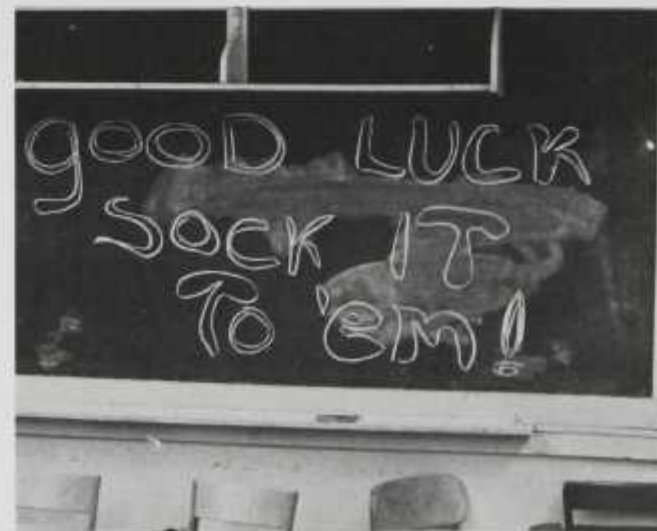 gOOD LUCK
SOCK IT
To 'em!